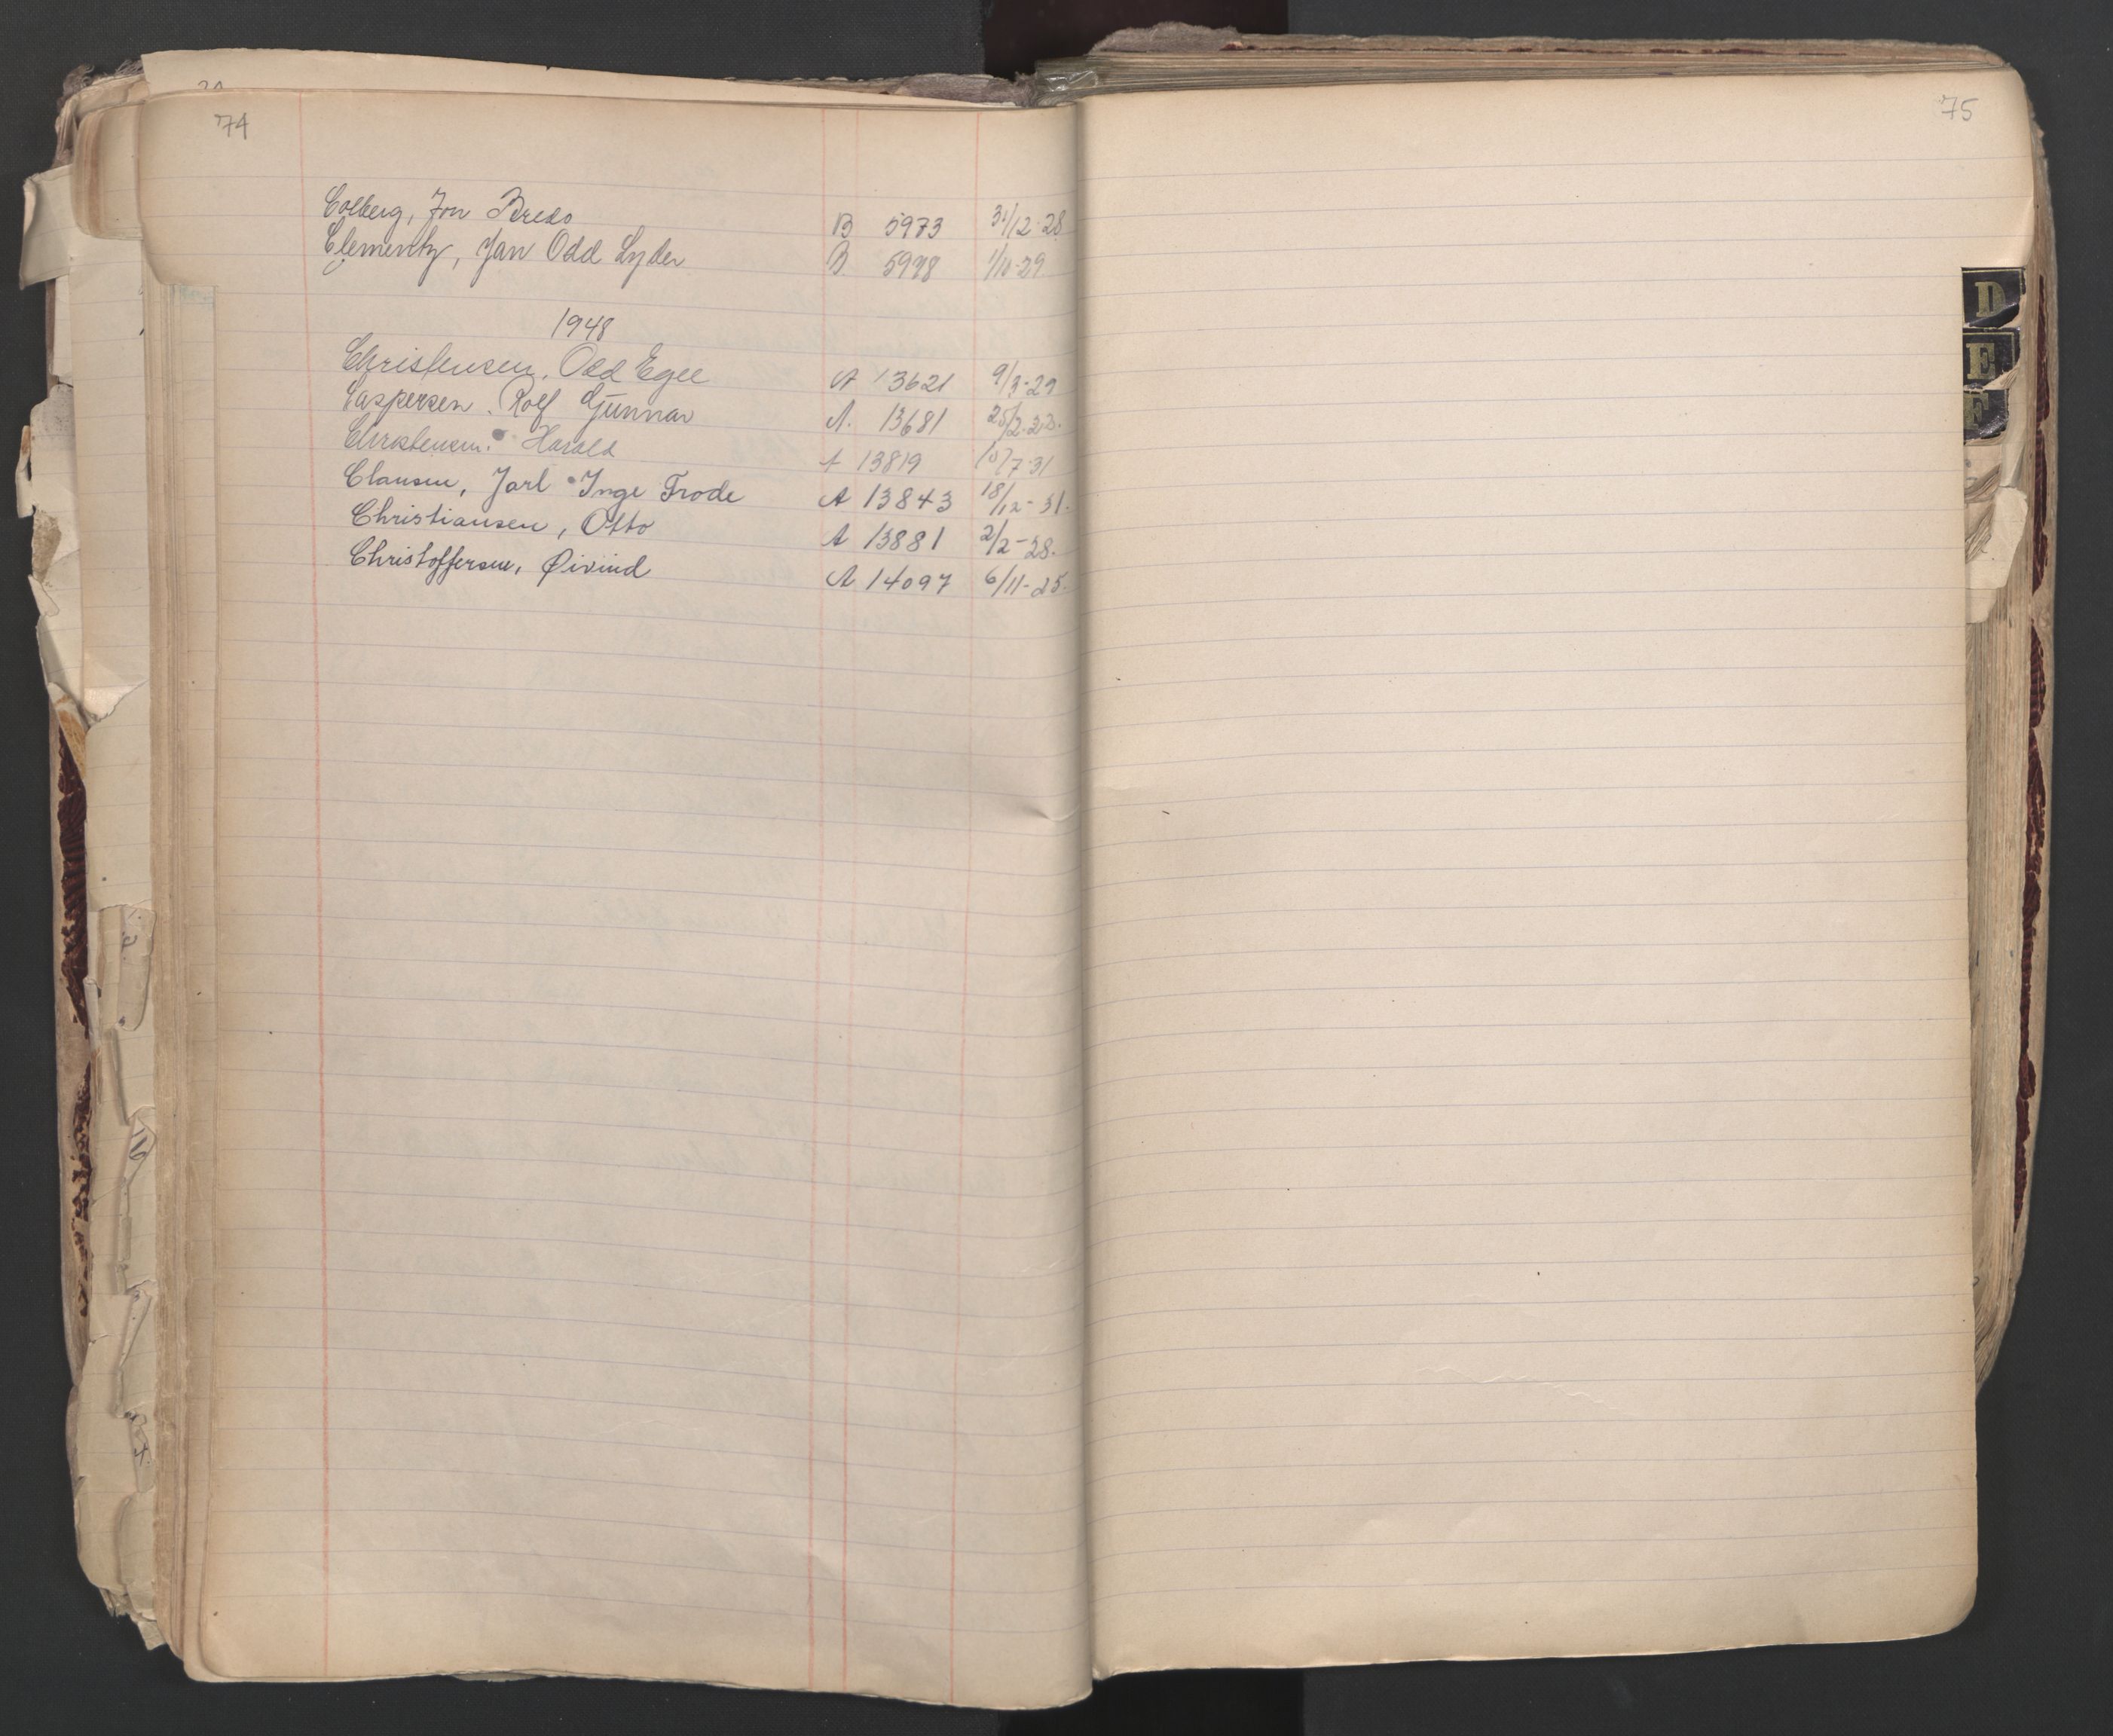 74
Colberg, Jon Bredo B 5973 31/12-28
Clementz, Jan Odd Lyder B 5998 1/10-29
1948
Christensen, Odd Egil A 13621 9/3-29
Caspersen. Rolf Gunnar A. 13681 25/2-32.
Christensen. Harald A 13819 10/7-31
Clausen, Jarl Inge Frode A 13843 18/12-31.
Christiansen, Otto A 13881 2/2-28.
Christoffersen, Øivind A 14097 6/11-25.
75
D
E
F